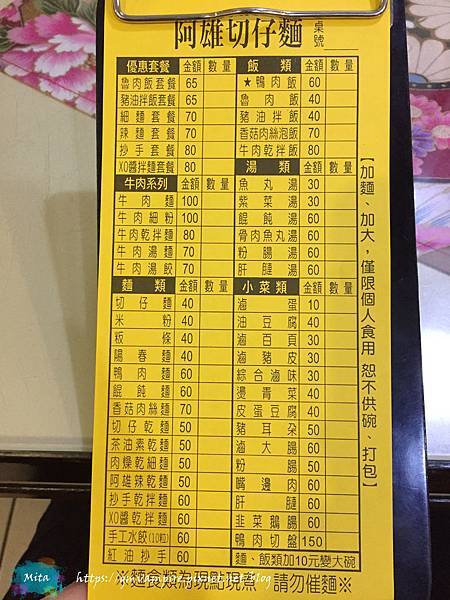 阿雄切仔麵
桌號
優惠套餐 金額 數量
魯肉飯套餐 65
豬油拌飯套餐 65
細麵套餐 70
辣麵套餐 70
抄手套餐 80
XO醬拌麵套餐 80
牛肉系列 金額 數量
牛肉麵 100
牛肉細粉 100
牛肉乾拌麵 80
牛肉湯麵 70
牛肉湯餃 70
麵類 金額 數量
切仔麵 40
米粉 40
粄條 40
陽春麵 40
鴨肉麵 60
餛飩麵 60
香菇肉絲麵 70
切仔乾麵 50
茶油素乾麵 50
肉燥乾細麵 50
阿雄辣乾麵 50
抄手乾拌麵 60
XO醬乾拌麵 60
手工水餃(10粒) 60
紅油抄手 60
飯類 金額 數量
★鴨肉飯 60
魯肉飯 40
豬油拌飯 40
香菇肉絲泡飯 70
牛肉乾拌飯 80
湯類 金額 數量
魚丸湯 30
紫菜湯 30
餛飩湯 60
骨肉魚丸湯 60
粉腸湯 60
肝膶湯 60
小菜類 金額 數量
滷蛋 10
油豆腐 40
滷百頁 30
滷豬皮 30
綜合滷味 30
燙青菜 40
皮蛋豆腐 40
豬耳朵 50
滷大腸 60
粉腸 50
嘴邊肉 60
肝膶 60
韭菜鵝腸 60
鴨肉切盤 150
麵、飯類加10元變大碗
【加麵、加大，僅限個人食用 恕不供碗、打包】
※麵食類為現點現煮，請勿催麵※
Mita